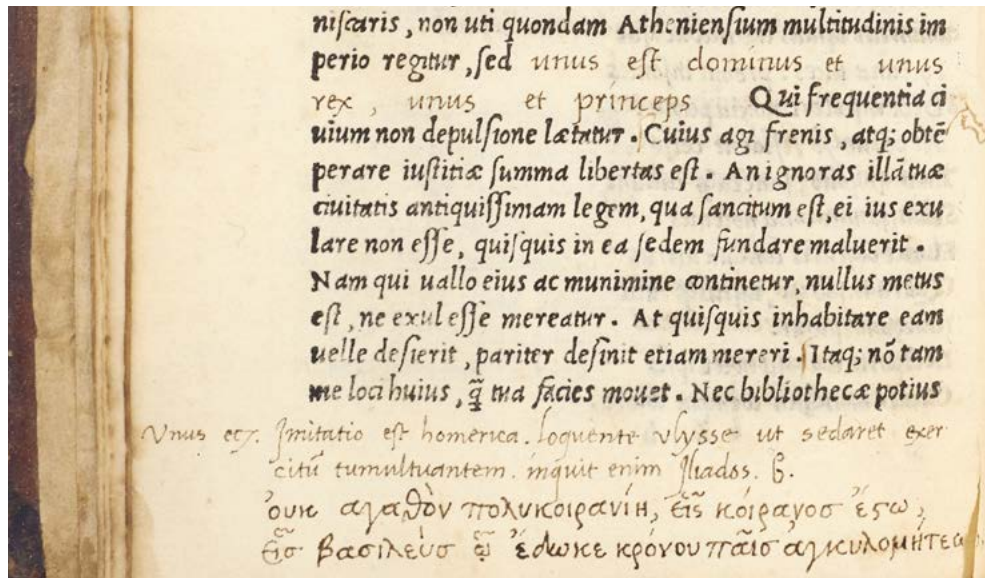 niſcaris, non uti quondam Athenienſium multitudinis im
perio regitur, ſed unus eſt dominus et unus
rex, unus et princeps Qui frequentia ci
uium non depulſione lætatur. Cuius agi frenis, atq; obtẽ
perare iuſtitiæ ſumma libertas eſt. An ignoras illã tuæ
ciuitatis antiquiſſimam legem, qua ſancitum eſt, ei ius exu
lare non eſſe, quiſquis in ea ſedem fundare maluerit.
Nam qui uallo eius ac munimine continetur, nullus metus
eſt, ne exul eſſe mereatur. At quiſquis inhabitare eam
uelle deſierit, pariter deſinit etiam mereri. Itaq; nõ tam
me loci huius, q̃ tua facies mouet. Nec bibliothecæ potius
Vnus ec7. Imitatio est homerica. loquente vlysse ut sedaret exer
citũ tumultuantem. inquit enim Iliados. β.
ὀυκ αγαθὸν πολυκοιρανίη, εἷς κόιρανοσ ἔστω,
εἷσ βασιλεὺσ ᾧ ἔδωκε κρόνου παῖσ αγκυλομήτεω